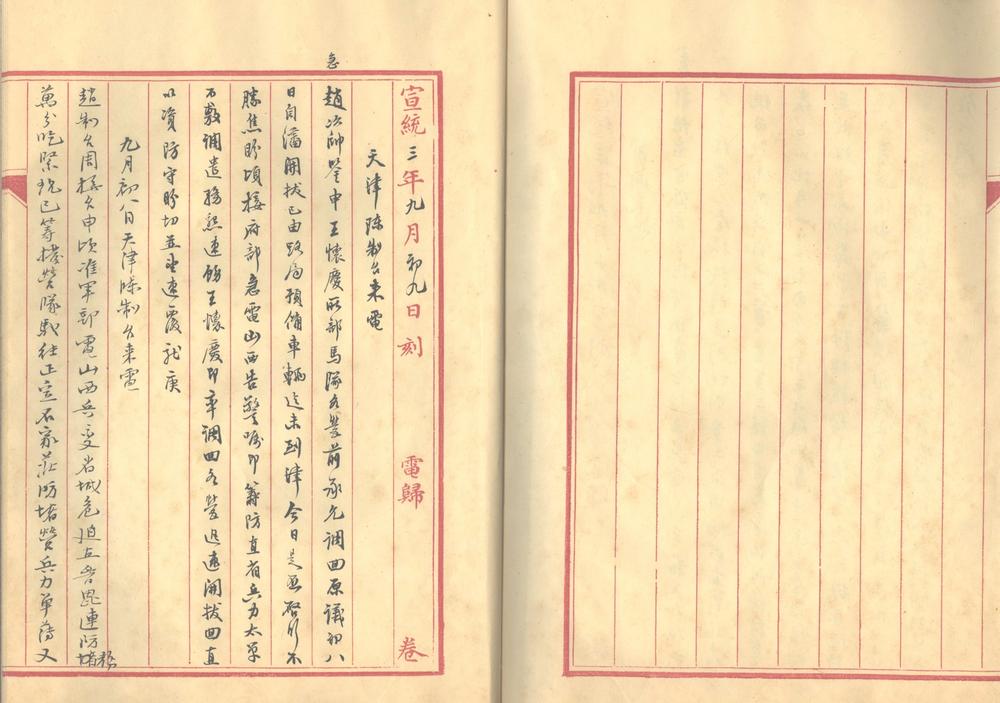 宣統三年九月初九日刻 電歸 卷
天津陳制台來電
急
趙次帥鑒申王懷慶所部馬隊各營前承允調回原議初八
日自瀋開拔已由路局預備車輛迄未到津今日是否啓行不
勝焦盼頃接府部急電山西告警囑即籌防直省兵力太單
不敷調遣務懇速飭王懷慶即率調回各營迅速開拔回直
以資防守盼切並望速覆龍庚
九月初八日天津陳制台來電
趙制台周撫台申頃准軍部電山西兵變省城危迫直晉毘連防堵務
萬分吃緊現已籌撥營隊馳往正定石家莊防堵營兵力單薄又